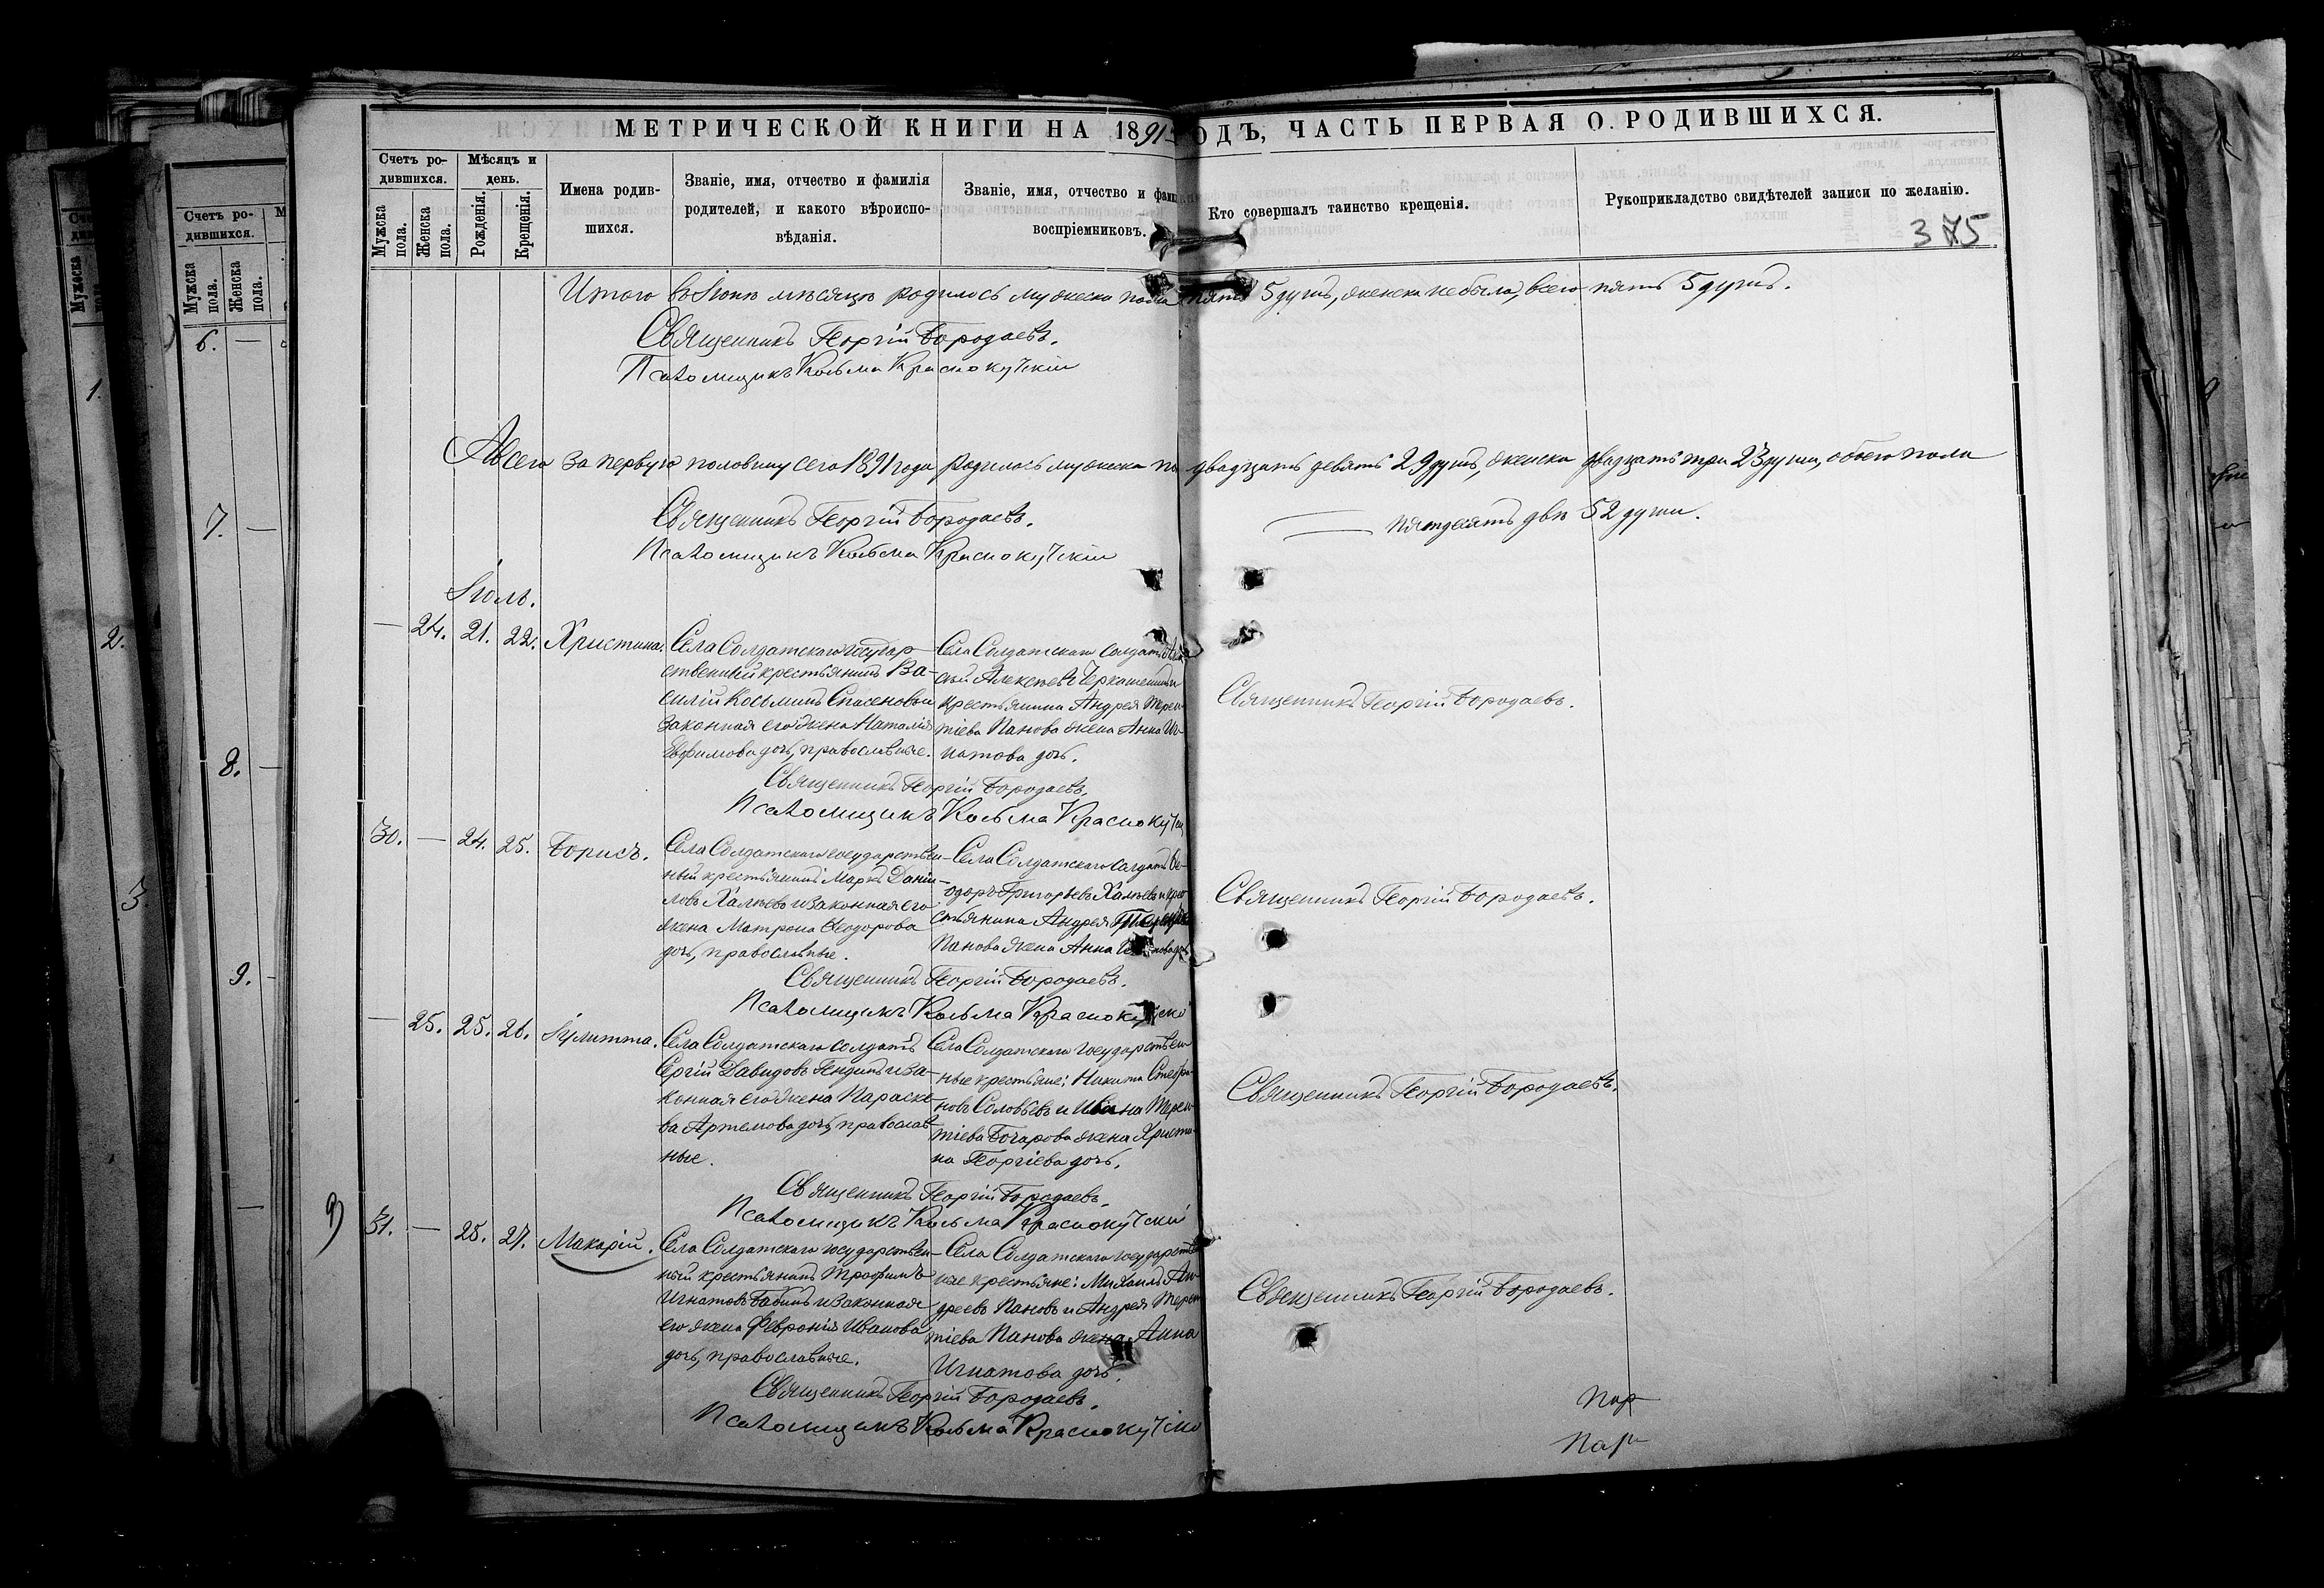 МЕТРИЧЕСКОЙ КНИГИ НА 1891 ОДЪ, ЧАСТЬ ПЕРВАЯ О РОДИВШИХСЯ.
375
Счетъ родившихся.
Мужска пола.
Женска пола.
Мѣсяцъ и день.
Рожденія.
Крещенія.
Имена родившихся.
Званіе, имя, отчество и фамилія
родителей, и какого вѣроиспо-
вѣданія.
Званіе, имя, отчество и фами
воспріемниковъ.
Кто совершалъ таинство крещенія.
Рукоприкладство свидѣтелей записи по желанію.
Итого въ Іюнѣ мѣсяцѣ родилось мужеска пола пять 5 душъ, женска небыло, всего пять 5 душъ.
Священникъ Георгій Бородаевъ.
Псаломщикъ Косьма Краснокутскій
А всего за первую половину сего 1891 года родилось мужеска по двадцать девять 29 душъ, женска двадцать три 23 души, обоего пола
пятдесятъ двѣ 52 души.
Священникъ Георгій Бородаевъ.
Псаломщикъ Косьма Краснокутскій
Іюль.
— 24. 21. 22. Христина.
Села Солдатскаго государ-
ственный крестьянинъ Ва-
силій Косьминъ и
законная его жена Наталія
Евфимова дочь, православные.
Села Солдатскаго солдатъ
Алексѣевъ Черкашенинъ и
крестьянина Андрея Терен-
тіева Панова жена Анна Иг-
натова дочь.
Священникъ Георгій Бородаевъ.
Священникъ Георгій Бородаевъ.
Псаломщикъ Косьма Краснокутск
30. — 24. 25. Борисъ.
Села Солдатскаго государствен-
ный крестьянинъ Маркъ Даніи-
ловъ Халѣевъ и законная его
жена Матрона Ѳеодорова
дочь, православные.
Села Солдатскаго солдатъ Ѳе-
одоръ Григорьевъ Халѣевъ и кре
стьянина Андрея
Панова жена Анна
Священникъ Георгій Бородаевъ.
Священникъ Георгій Бородаевъ.
Псаломщикъ Косьма Краснокутскій
— 25. 25. 26. Іулитта.
Села Солдатскаго солдатъ
Сергій Давидовъ и за-
конная его жена Параске-
ва Артемова дочь, православ-
ные.
Села Солдатскаго государствен
ные крестьяне: Никита Стефа-
новъ Соловьевъ и Ивана Терен
тіева Бочарова жена Христи-
на Георгіева дочь.
Священникъ Георгій Бородаевъ.
Священникъ Георгій Бородаевъ.
Псаломщикъ Косьма Краснокутскій
31. — 25. 27. Макарій.
Села Солдатскаго государствен-
ный крестьянинъ Трофимъ
Игнатовъ Бабинъ и законная
его жена Февронія Иванова
дочь, православные.
Села Солдатскаго государств
ные крестьяне: Михаилъ Ан-
дреевъ Пановъ и Андрея Терен
тіева Панова жена Анна
Игнатова дочь.
Священникъ Георгій Бородаевъ.
Священникъ Георгій Бородаевъ.
Псаломщикъ Косьма Краснокутск
Счетъ ро-
дившихся.
Мужска пола.
Женска пола.
6. —
7. —
8. —
9. -
1.
2.
3.